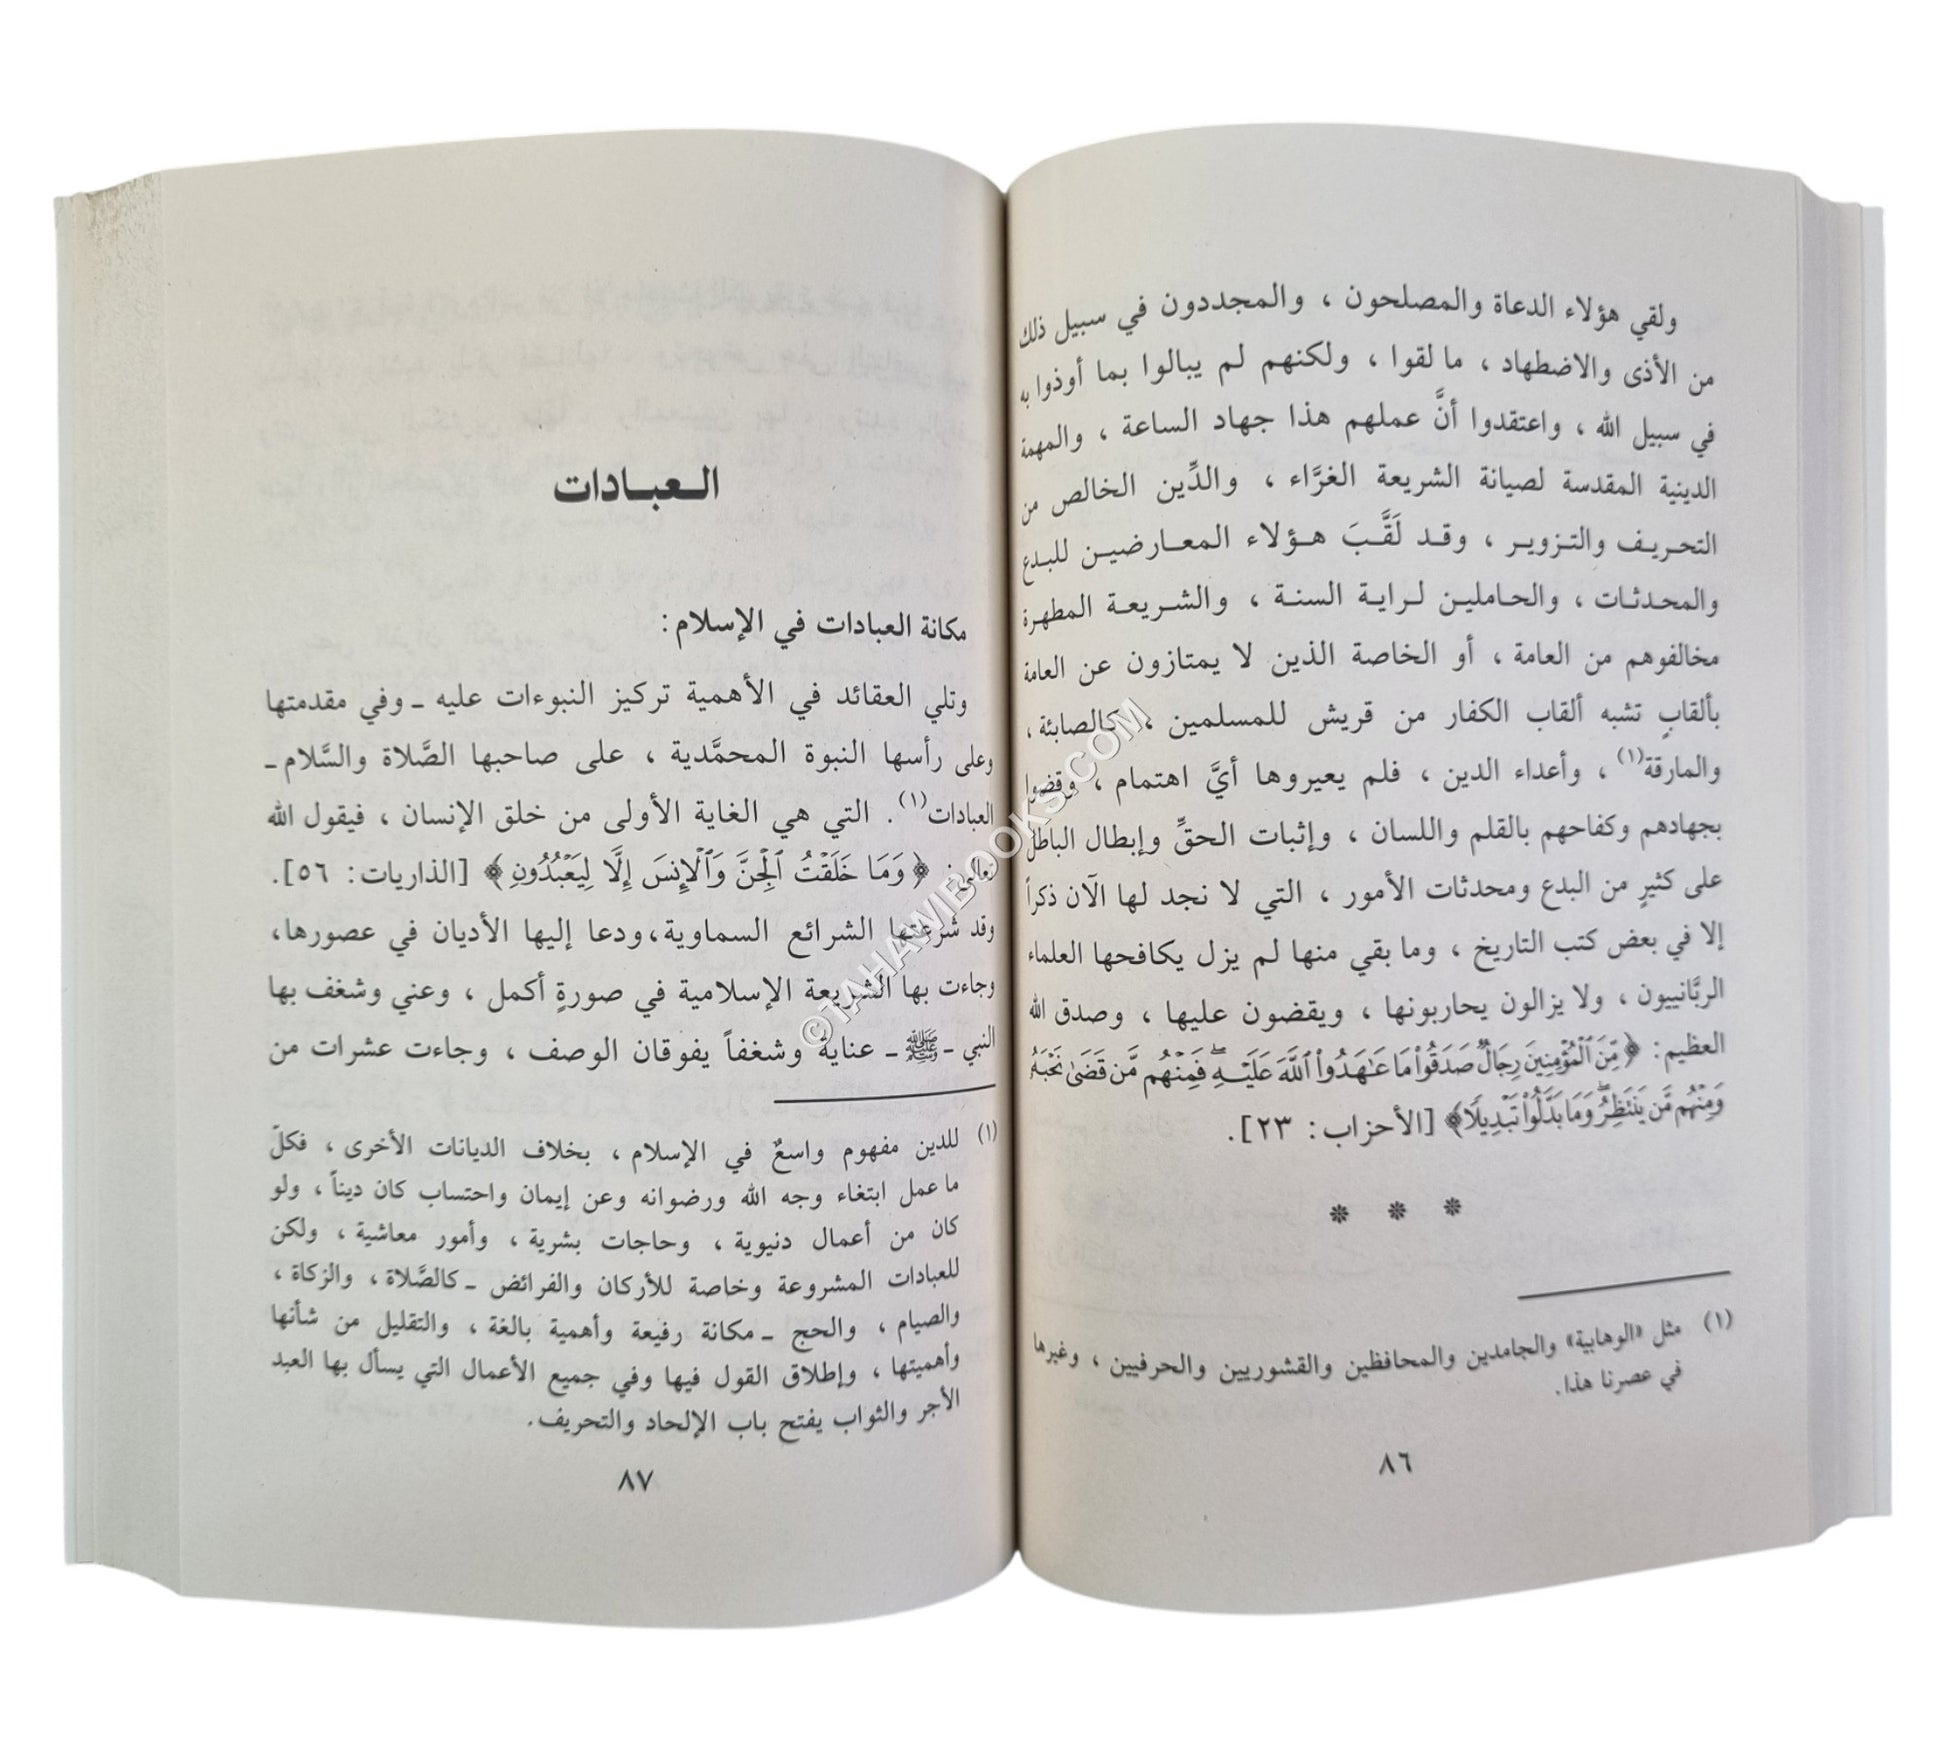 ولقي هؤلاء الدعاة والمصلحون ، والمجددون في سبيل ذلك
من الأذى والاضطهاد ، ما لقوا ، ولكنهم لم يبالوا بما أوذوا به
في سبيل الله ، واعتقدوا أنَّ عملهم هذا جهاد الساعة ، والمهمة
الدينية المقدسة لصيانة الشريعة الغرَّاء ، والدِّين الخالص من
التحريف والتزوير ، وقد لَقَّبَ هؤلاء المعارضين للبدع
والمحدثات ، والحاملين لراية السنة ، والشريعة المطهرة
مخالفوهم من العامة ، أو الخاصة الذين لا يمتازون عن العامة
بألقابٍ تشبه ألقاب الكفار من قريش للمسلمين ، كالصابئة ،
والمارقة(١) ، وأعداء الدين ، فلم يعيروها أيَّ اهتمام ، وقضوا
بجهادهم وكفاحهم بالقلم واللسان ، وإثبات الحقِّ وإبطال الباطل
على كثيرٍ من البدع ومحدثات الأمور ، التي لا نجد لها الآن ذكراً
إلا في بعض كتب التاريخ ، وما بقي منها لم يزل يكافحها العلماء
الربَّانييون ، ولا يزالون يحاربونها ، ويقضون عليها ، وصدق الله
العظيم: ﴿ مِّنَ ٱلْمُؤْمِنِينَ رِجَالٌ صَدَقُوا۟ مَا عَـٰهَدُوا۟ ٱللَّهَ عَلَيْهِ ۖ فَمِنْهُم مَّن قَضَىٰ نَحْبَهُ
وَمِنْهُم مَّن يَنتَظِرُ ۖ وَمَا بَدَّلُوا۟ تَبْدِيلًا ﴾ [الأحزاب : ٢٣].
* * *
(١) مثل «الوهابية» والجامدين والمحافظين والقشوريين والحرفيين ، وغيرها
في عصرنا هذا.
٨٦
العبادات
مكانة العبادات في الإسلام:
وتلي العقائد في الأهمية تركيز النبوءات عليه ـ وفي مقدمتها
وعلى رأسها النبوة المحمَّدية ، على صاحبها الصَّلاة والسَّلام ـ
العبادات(١) . التي هي الغاية الأولى من خلق الإنسان ، فيقول الله
تعالى: ﴿ وَمَا خَلَقْتُ ٱلْجِنَّ وَٱلْإِنسَ إِلَّا لِيَعْبُدُونِ ﴾ [الذاريات: ٥٦].
وقد شرعتها الشرائع السماوية، ودعا إليها الأديان في عصورها،
وجاءت بها الشريعة الإسلامية في صورةٍ أكمل ، وعني وشغف بها
النبي ـ ﷺ ـ عنايةً وشغفاً يفوقان الوصف ، وجاءت عشرات من
(١) للدين مفهوم واسعٌ في الإسلام ، بخلاف الديانات الأخرى ، فكلّ
ما عمل ابتغاء وجه الله ورضوانه وعن إيمان واحتساب كان ديناً ، ولو
كان من أعمال دنيوية ، وحاجات بشرية ، وأمور معاشية ، ولكن
للعبادات المشروعة وخاصة للأركان والفرائض ـ كالصَّلاة ، والزكاة ،
والصيام ، والحج ـ مكانة رفيعة وأهمية بالغة ، والتقليل من شأنها
وأهميتها ، وإطلاق القول فيها وفي جميع الأعمال التي يسأل بها العبد
الأجر والثواب يفتح باب الإلحاد والتحريف.
٨٧
©TAHAWIBOOKS.COM